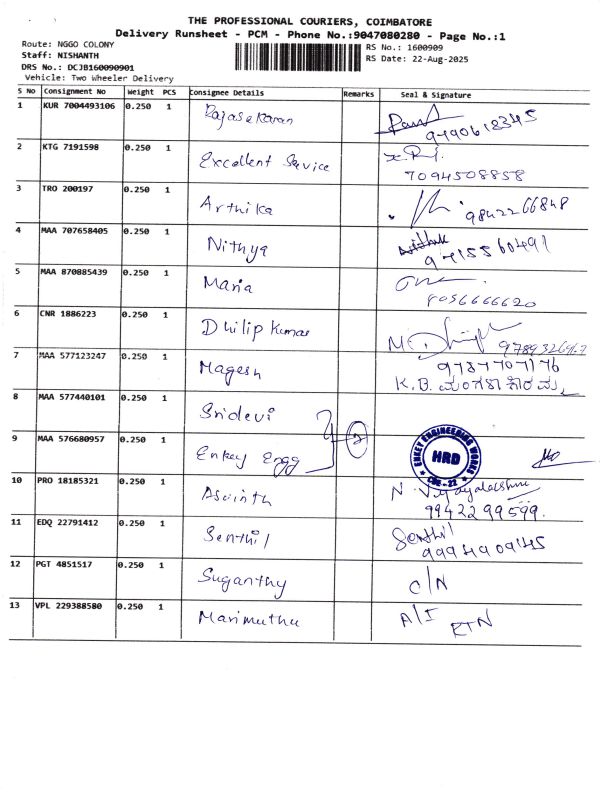 THE PROFESSIONAL COURIERS, COIMBATORE
Delivery Runsheet - PCM - Phone No.:9047080280 - Page No.:1
Route: NGGO COLONY
RS No.: 1600909
Staff: NISHANTH
RS Date: 22-Aug-2025
DRS No.: DCJB160090901
Vehicle: Two Wheeler Delivery
S No Consignment No Weight PCS Consignee Details Remarks Seal & Signature
1 KUR 7004493106 0.250 1 Rajasekaran
2 KTG 7191598 0.250 1 Excellent Service
7094508858
3 TRO 200197 0.250 1 Arthika 9842266848
4 MAA 707658405 0.250 1 Nithya
9715560491
5 MAA 870885439 0.250 1 Maria
8056666620
6 CNR 1886223 0.250 1 Dhilip Kumar
7 MAA 577123247 0.250 1 Magesh
9787707176
K.B.
8 MAA 577440101 0.250 1 Sridevi
9 MAA 576680957 0.250 1 Enkey Engg 2 ENKEY ENGINEERING WORKS HRD CBE-22
10 PRO 18185321 0.250 1 Aswinth N. Vijayalakshmi
9942299599.
11 EDQ 22791412 0.250 1 Senthil Senthil
9994909145
12 PGT 4851517 0.250 1 Suganthy C/N
13 VPL 229388580 0.250 1 Marimuthu A/I RTN